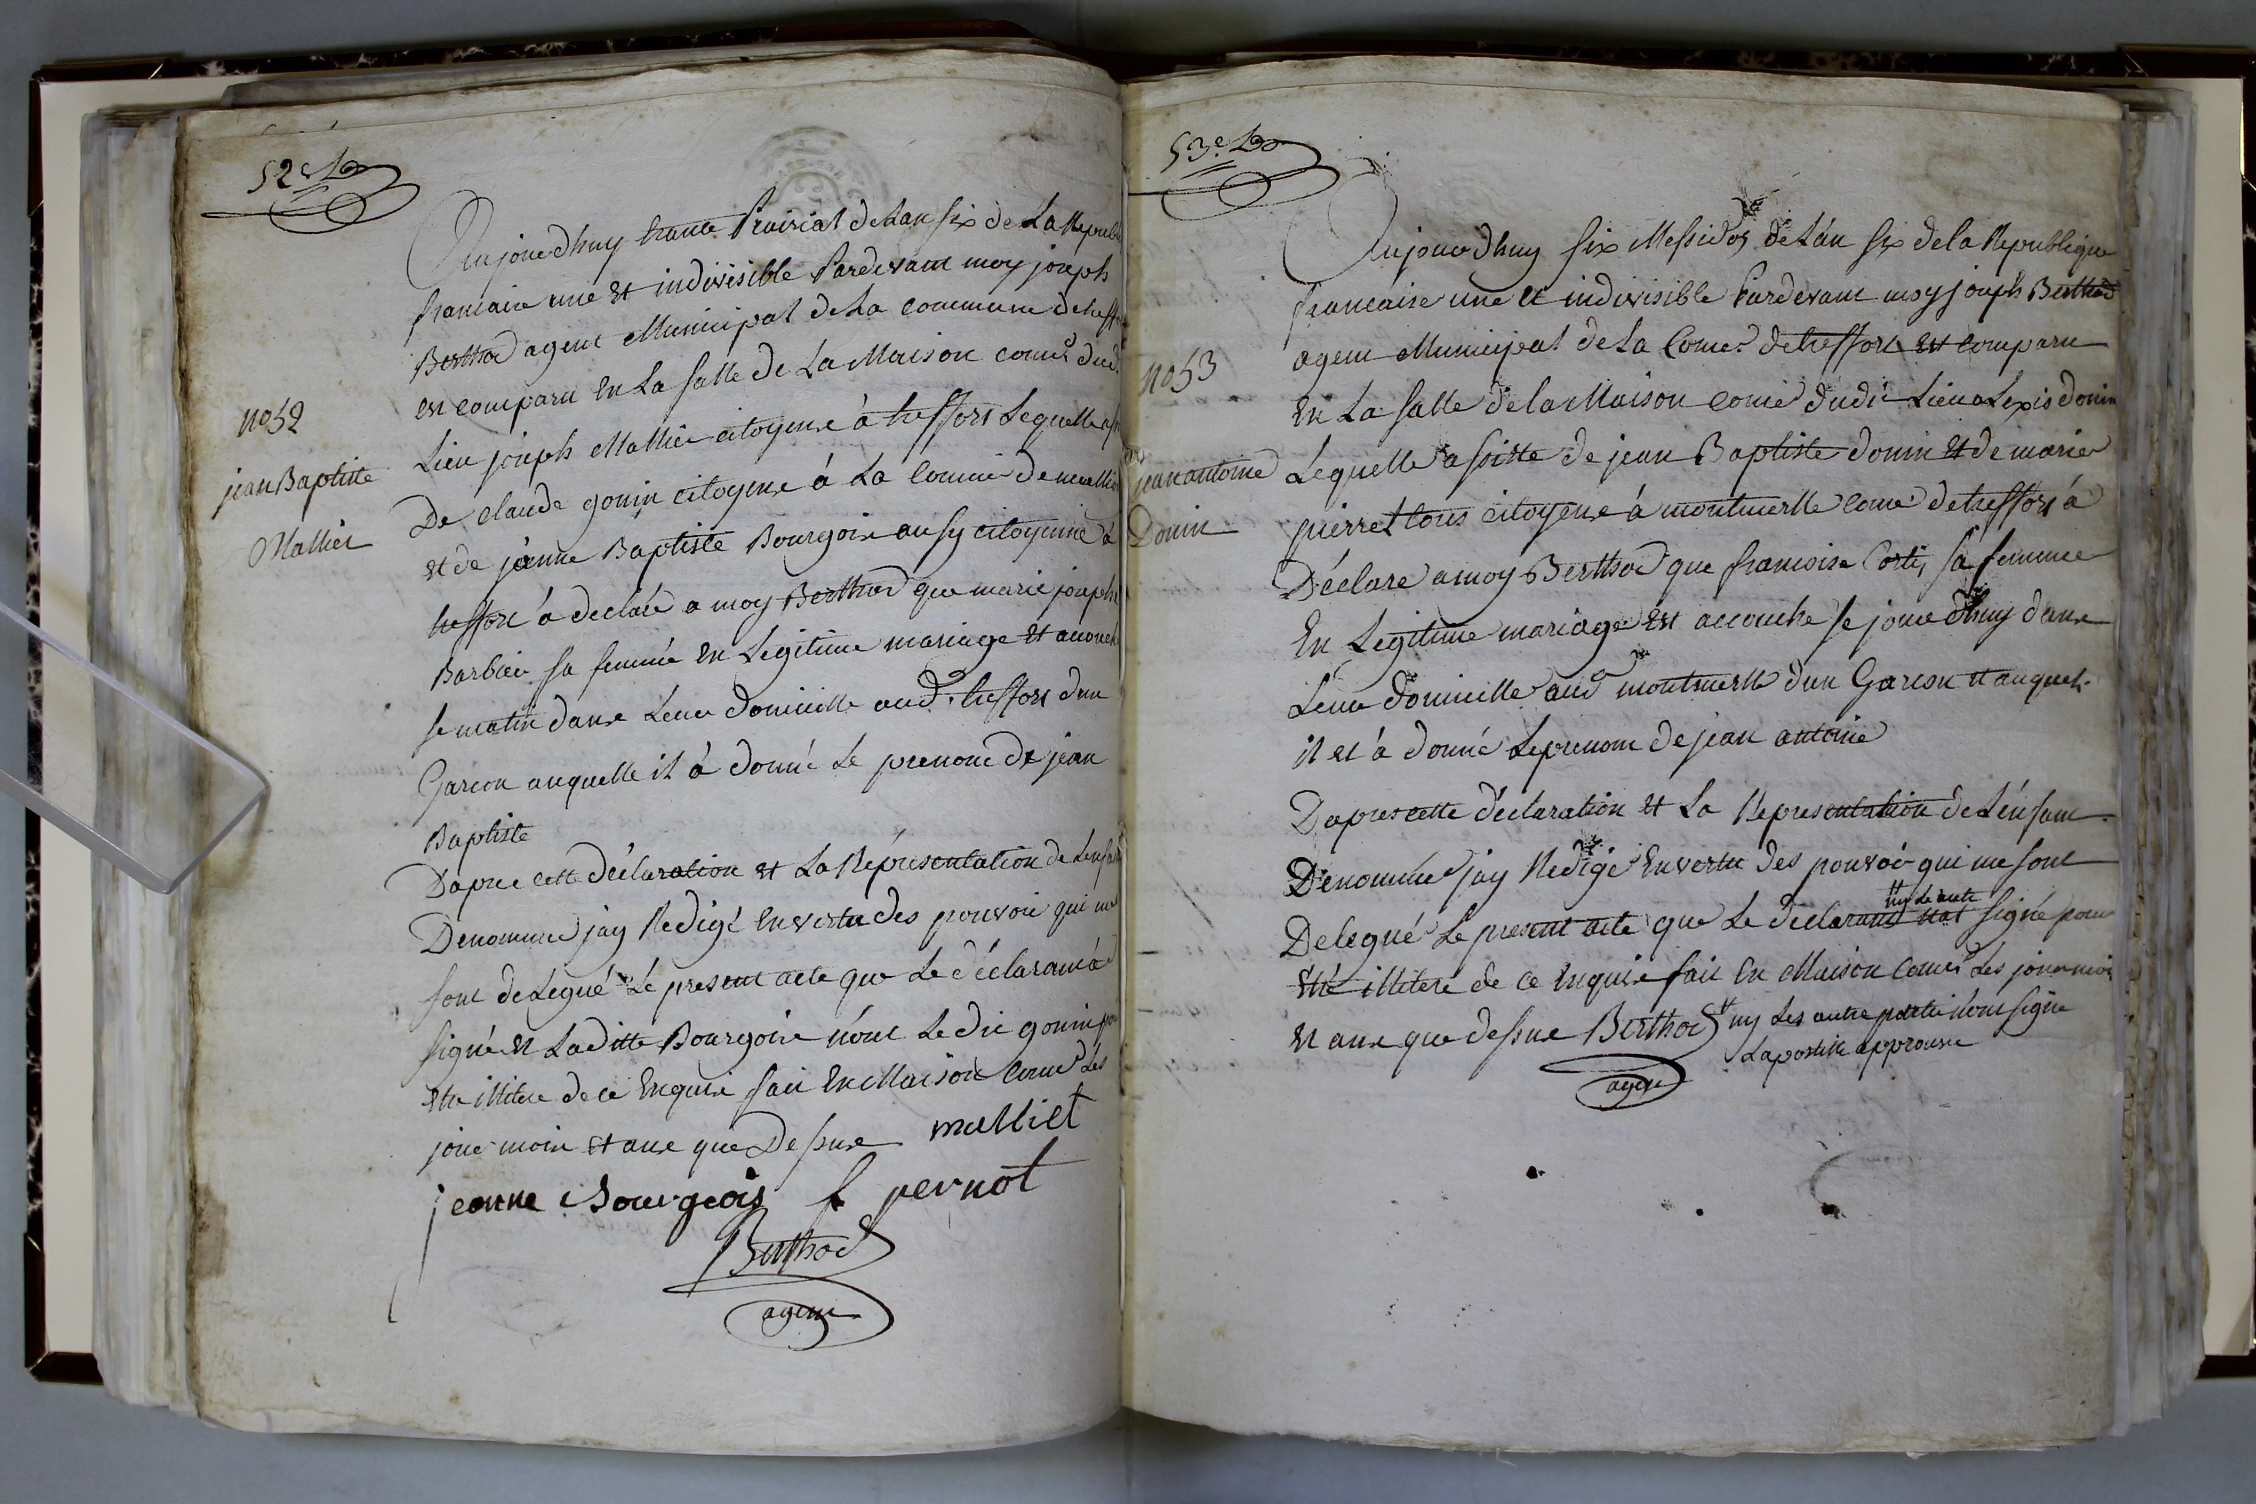 52e
Aujourdhuy trante Prairial de Lan six de La Republi
francaise une Et indivisible Pardevant moy joseph
Berthod agent Municipal de La commune de treffo
Est comparu En La salle de La Maison comé dud.
Lieu joseph Malliet citoyens à treffort Lequelle assi
De claude gonin citoyens á La Commé de
et de jeanne Baptiste Bourgois ausy citoyenne à
treffort à declaré a moy Berthod que marie josephe
Barbier sa femme En Legitime mariage Et accouche
se matin dans Leur domicille aud. treffort dun
Garcon auquelle il à donné Le prenom de jean
Baptiste
Dapres cette déclaration et La Réprésentation de Lenfan
Denommé jay Redigé En vertu des pouvoir qui me
sont deLegué Lé present acte que Le déclarant á
signé et Laditte Bourgois nónt Le dit gonin pour
Etre illitere de ce Enquis fait En Maison Comé Lés
jour mois et ans que Dessus malliet
jeanne Bourgeois f pernot
Berthod
agent
no 52
jean Baptiste
Malliet
53e
Aujourdhuy six Messidor de Lán six de la Republique
francaise une et indivisible Pardevant moy joseph Berthod
agent Municipal de La Come. de treffort est comparu
En La salle de la Maison Comé dudit Lieu aLexis donin
Lequelle assisté de jean Baptiste donin et de marie
pierret tous citoyens á montmerle come de treffort á
Déclaré a moy Berthod que francoise Corti, sa femme
En Legitime mariage Est accouche se jourdhuy dans
Leur domicille aud montmerle dun Garcon et auquel
il et à donné Le prenom de jean antoine
Dapres cette déclaration et La Representation de Lénfant
Dénommé jay Redigé En vertu des pouvoir qui me sont
ny Le autre
Delegué Le present acte que Le declarant nat signé pour
Etre illitere de ce Enquis fait En Maison Comé Les jour mois
et ans que dessus Berthod ny Les autre partie nónt signe
agent
Lapostille approuve
no 53
jean antoine
Donin